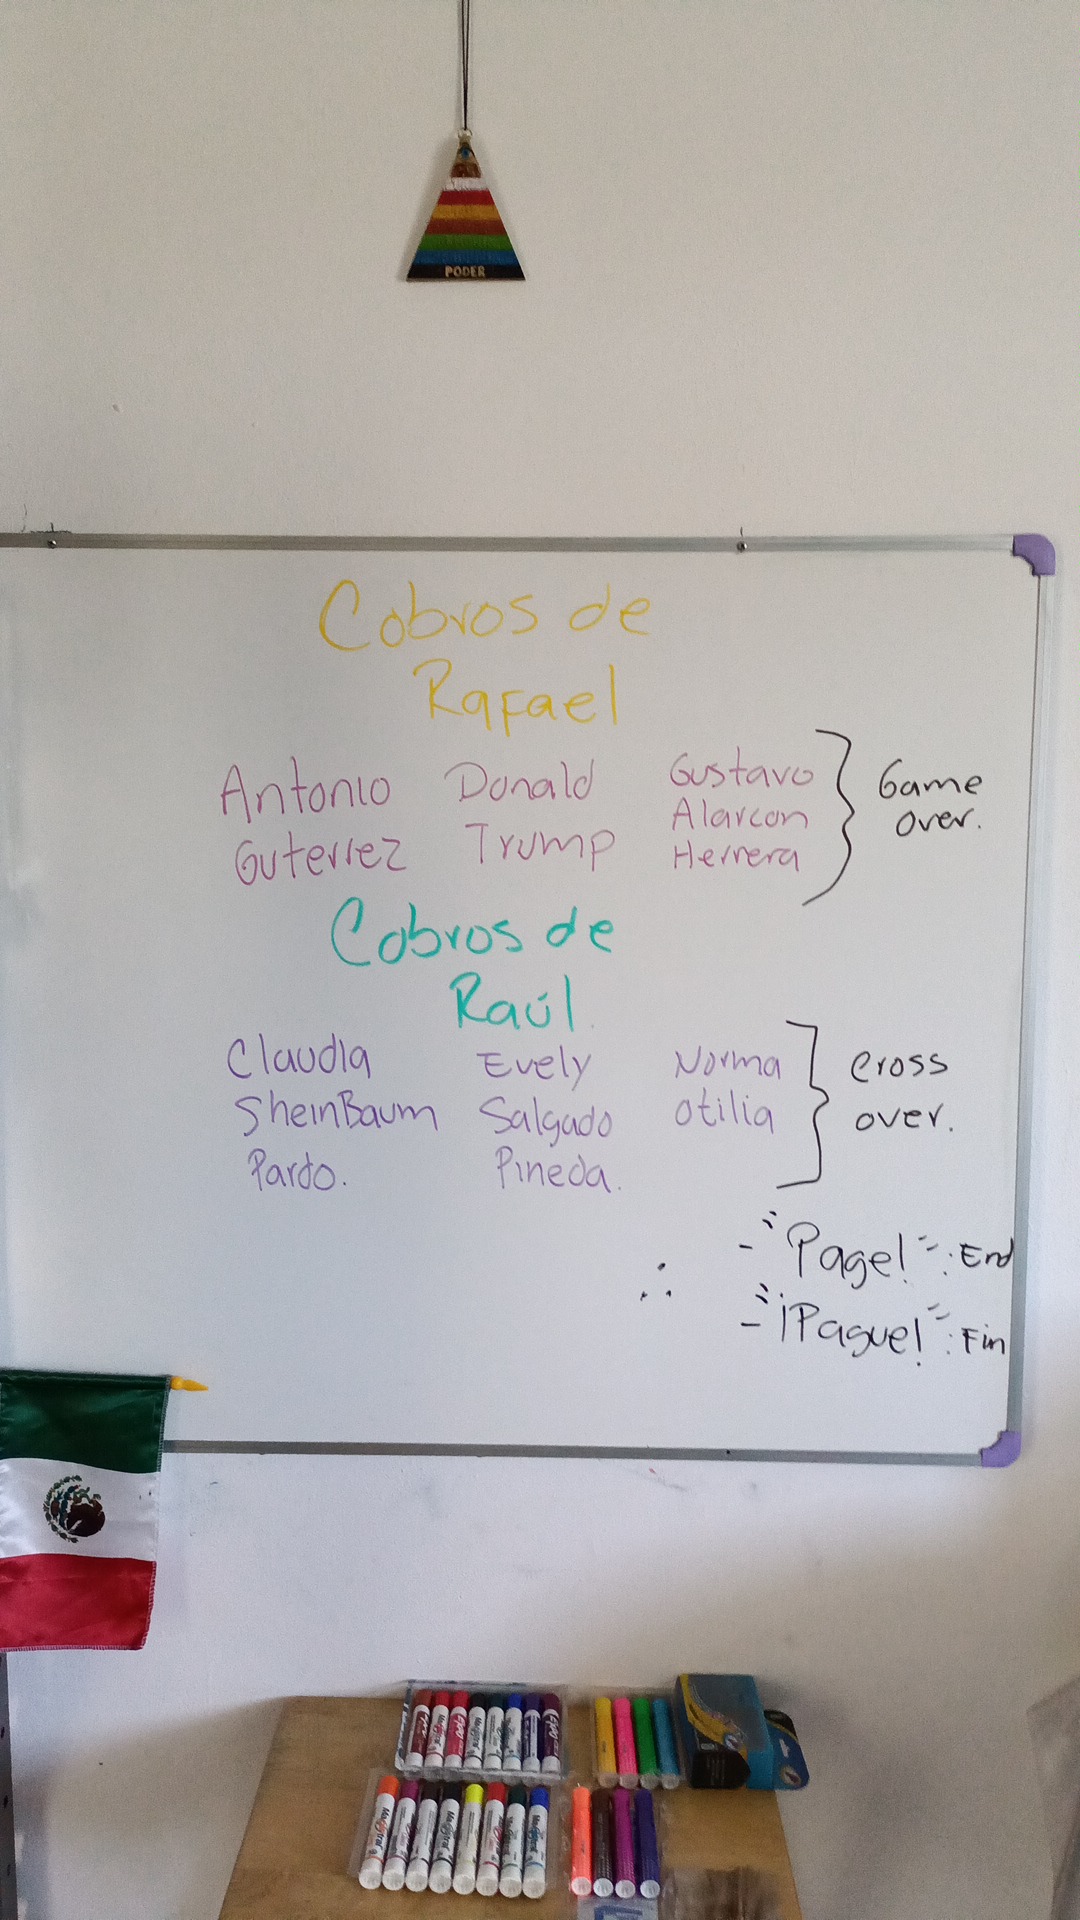 PODER
Cobros de
Rafael
Antonio Donald Gustavo
Guterrez Trump Alarcon
Herrera
Game
over.
Cobros de
Raúl.
Claudia Evely Norma
SheinBaum Salgado Otilia
Pardo. Pineda.
Cross
over.
∴ - "Page!" : End
- "¡Pague!" : Fin